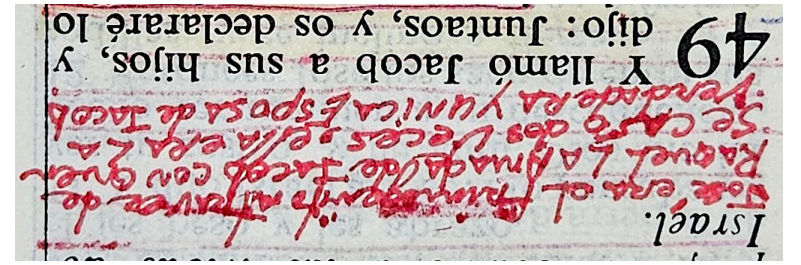 Israel.
José era el Primogenito atravez de
Raquel LA Amada de Jacob con quien
Se CASó dos veces, ella era LA
verdadeRA y uniCA Esposa de Jacob.
49 Y llamó Jacob a sus hijos, y
dijo: Juntaos, y os declararé lo